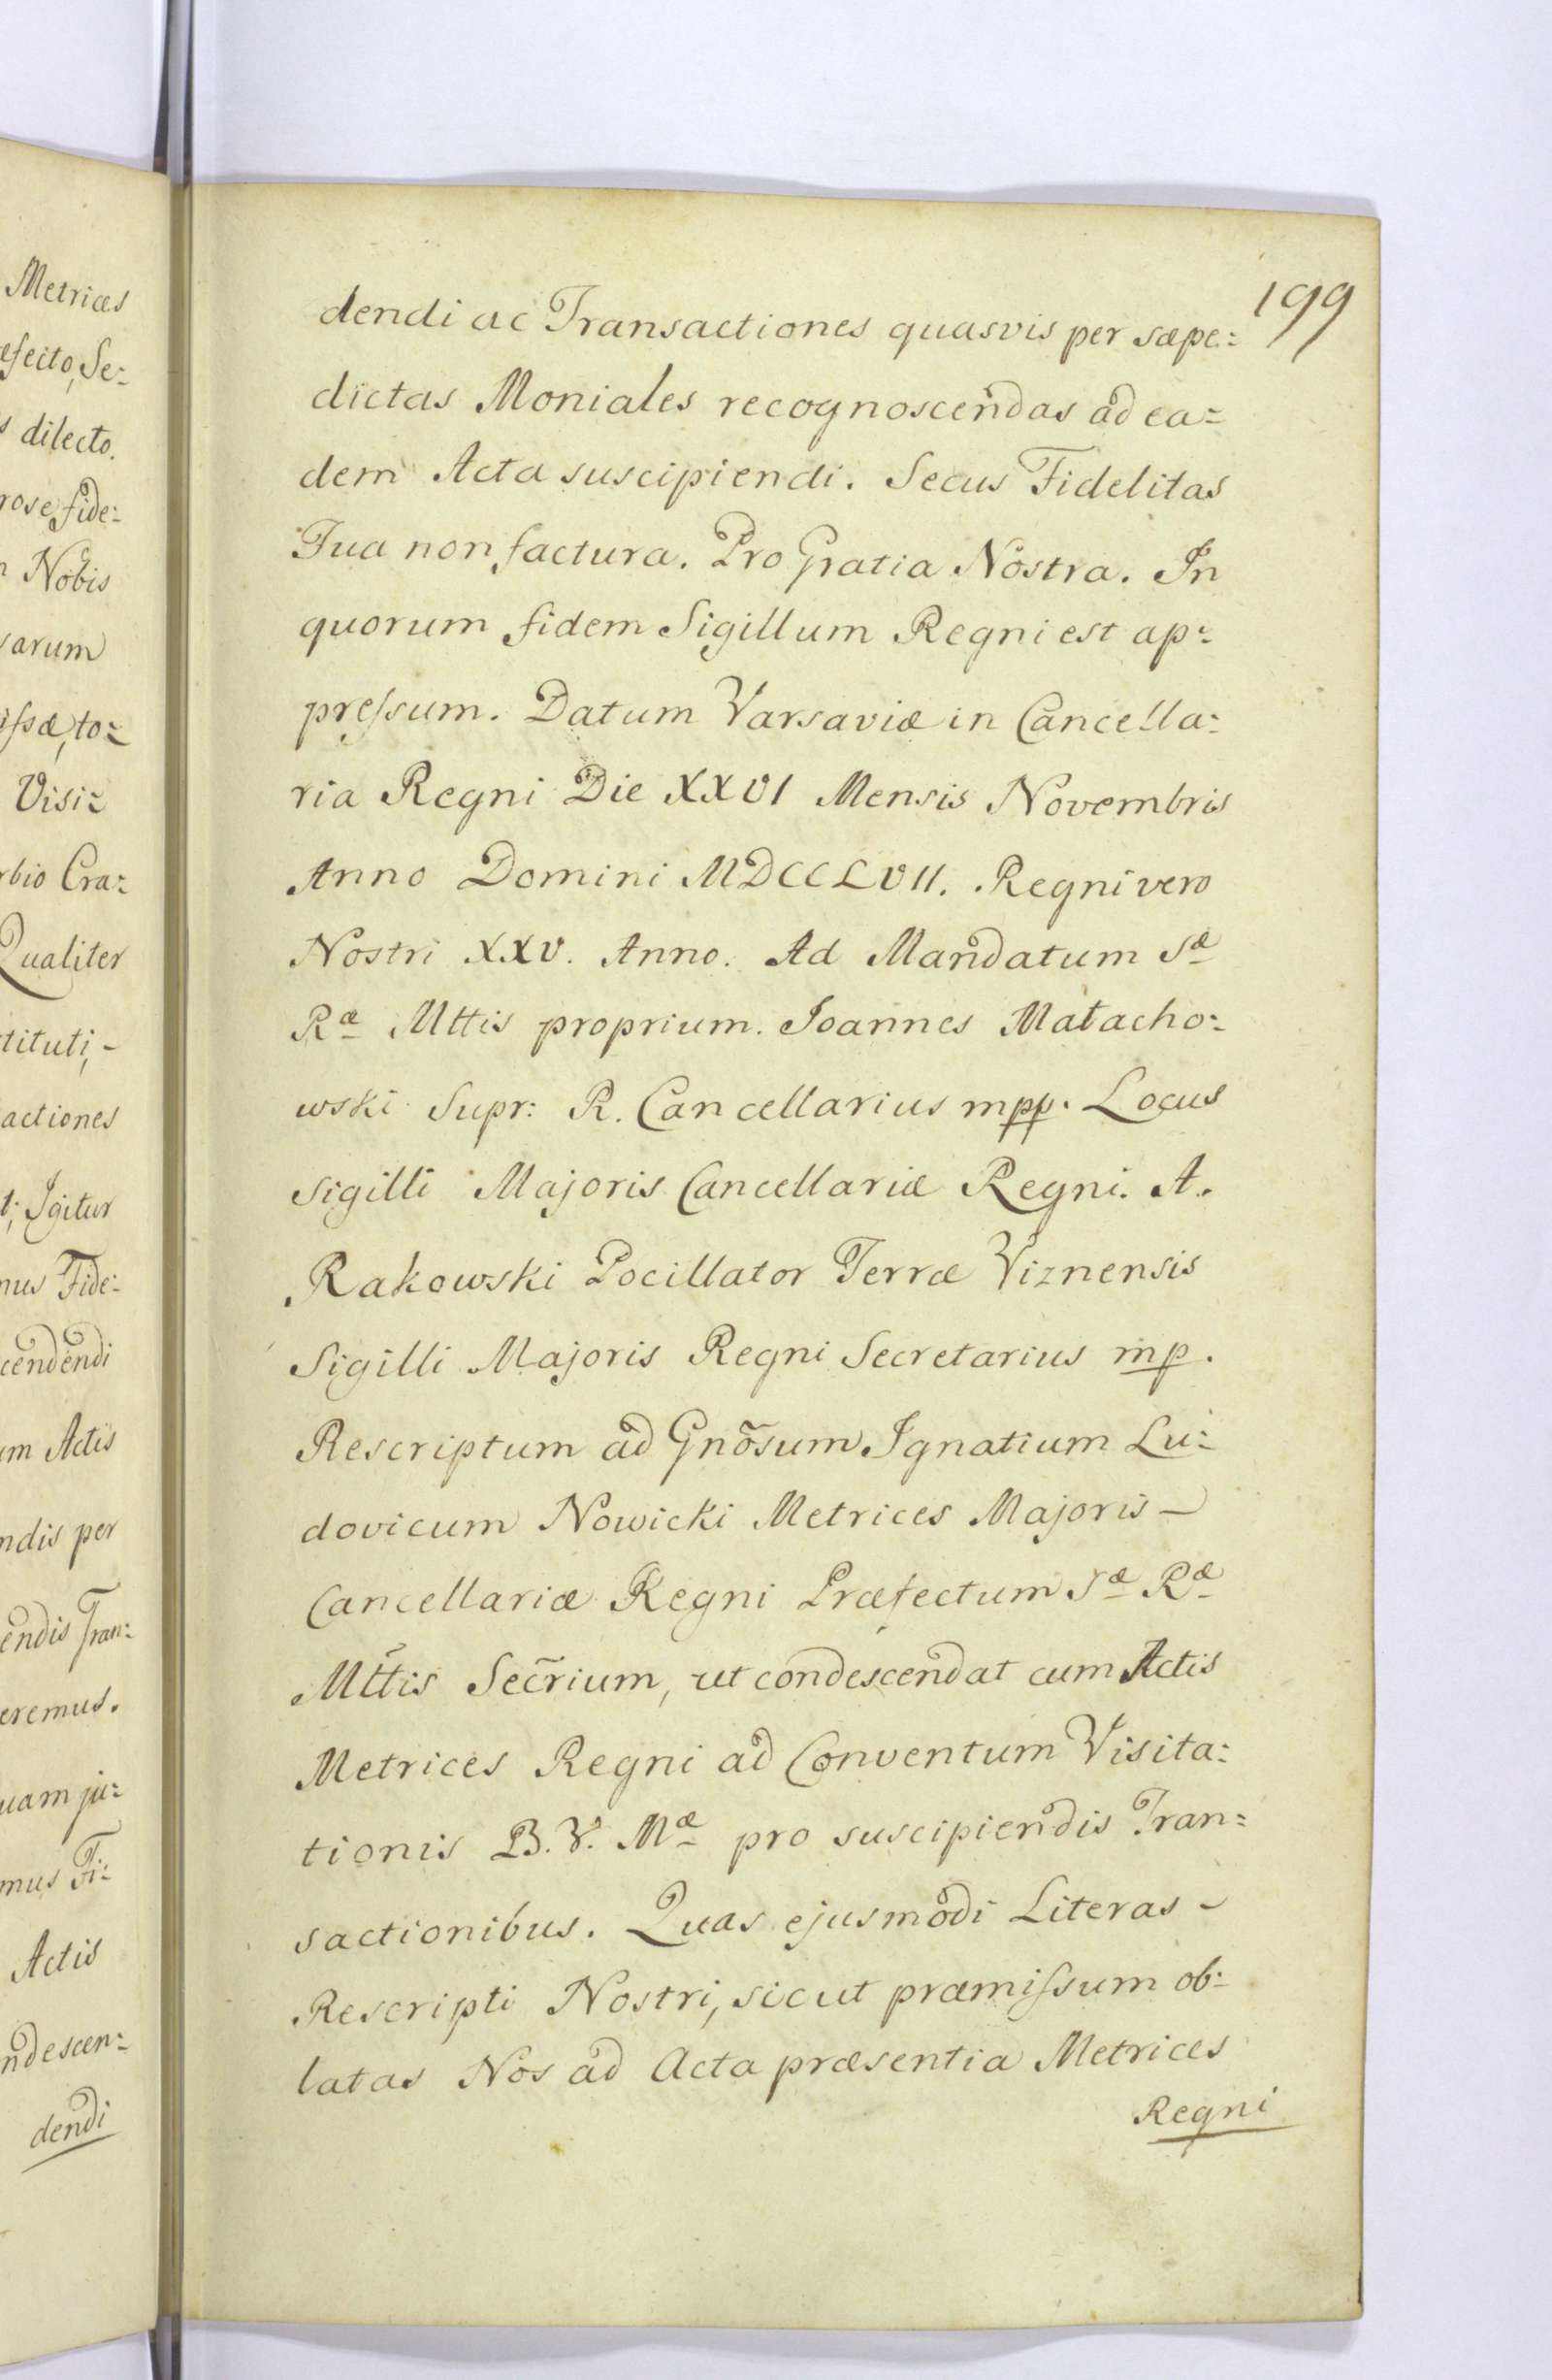 Metrices
efecto, Se:
s dilecto.
rose, fide:
n Nobis
sarum
issæ, to:
Visi:
rbio Cra:
Qualiter
tituti, -
actiones
t; Igitur
mus Fide:
cendendi
um Actis
ndis per
endis Tran:
eremus.
uam ju:
mus Fi:
Actis
ndescen:
dendi
199
dendi ac Transactiones quasvis per sæpe:
dictas Moniales recognoscendas ad ea:
dem Acta suscipiendi. Secus Fidelitas
Tua non factura. Pro Gratia Nostra. In
quorum fidem Sigillum Regni est ap:
pressum. Datum Varsaviæ in Cancella:
ria Regni Die XXVI Mensis Novembris
Anno Domini MDCCLVII. Regni vero
Nostri XXV. Anno. Ad Mandatum Sæ
Ræ Mttis proprium. Joannes Małacho:
wski Supr: R. Cancellarius mpp. Locus
Sigilli Majoris Cancellariæ Regni. A.
Rakowski Pocillator Terræ Viznensis
Sigilli Majoris Regni Secretarius mp.
Rescriptum ad Gnõsum Ignatium Lu:
dovicum Nowicki Metrices Majoris -
Cancellariæ Regni Præfectum Sæ Ræ
Mttis Secr̃ium, ut condescendat cum Actis
Metrices Regni ad Conventum Visita:
tionis B. V. Mæ pro suscipiendis Tran:
sactionibus. Quas ejusmodi Literas -
Rescripti Nostri, sicut præmissum ob:
latas Nos ad Acta præsentia Metrices
Regni